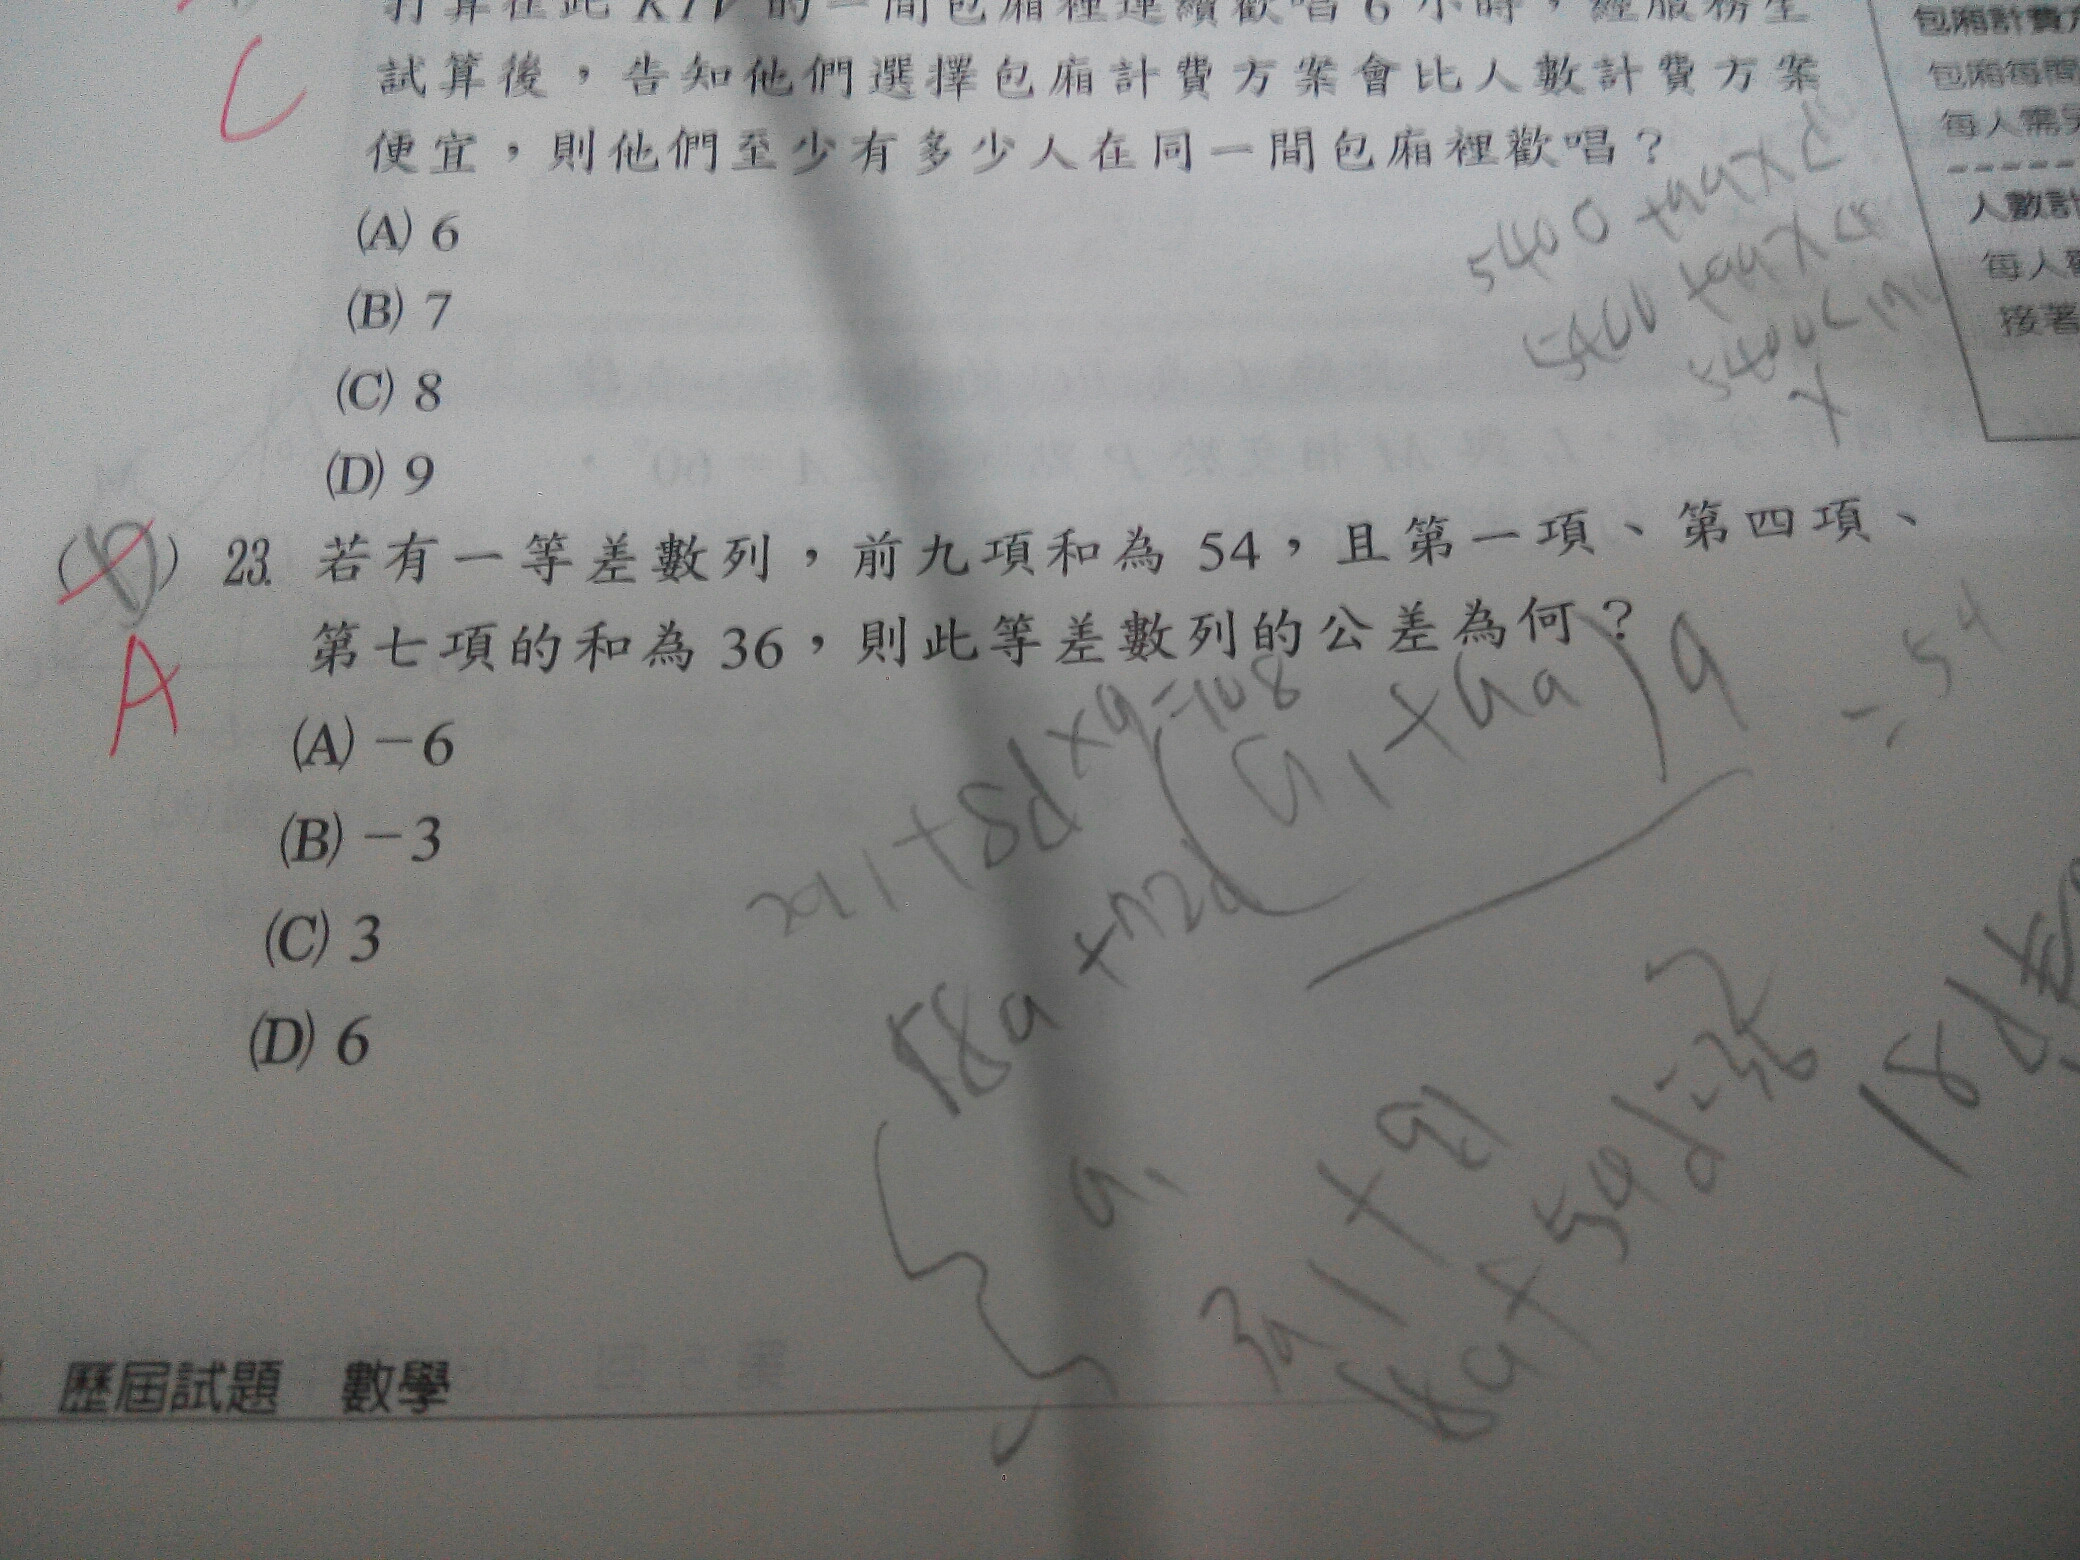 打算在此 KTV 的一間包廂裡連續歡唱 6 小時，經服務生
試算後，告知他們選擇包廂計費方案會比人數計費方案
便宜，則他們至少有多少人在同一間包廂裡歡唱？
C
(A) 6
(B) 7
(C) 8
(D) 9
包廂計費方
包廂每間
每人需另
人數計
每人
接著
(D) 23. 若有一等差數列，前九項和為 54，且第一項、第四項、
第七項的和為 36，則此等差數列的公差為何？
A
(A) －6
(B) －3
(C) 3
(D) 6
5400 +99×
5400
+8d×9=108
(a1+a9)9
=54
18a+72d
a1
3a1+9d
18a+54d=
18d
歷屆試題 數學